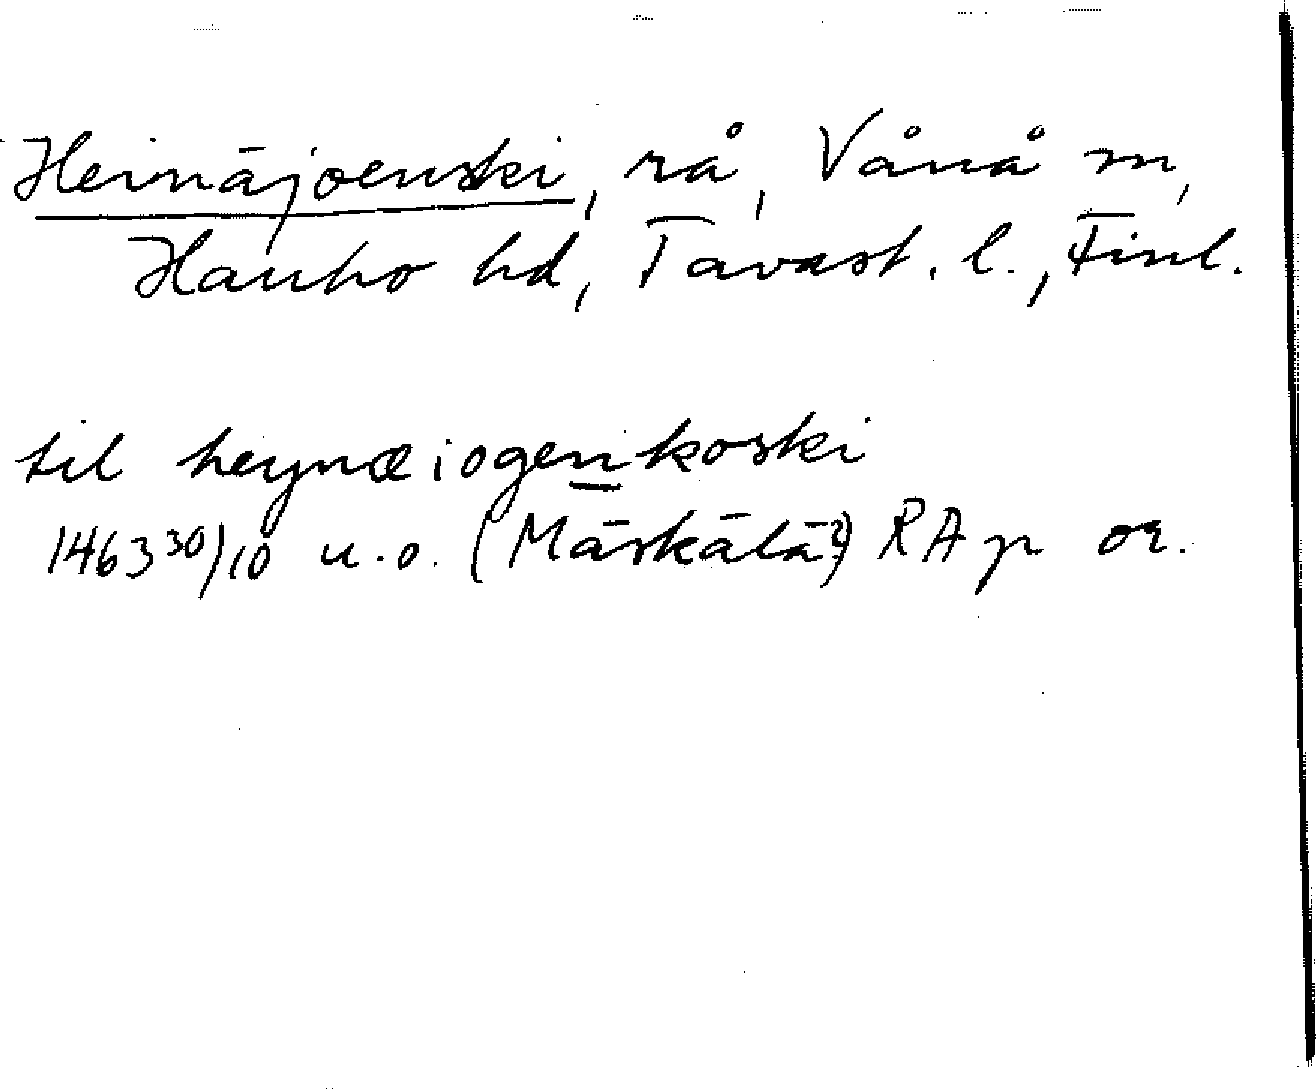 Heinäjoenski, rå, Vånå m,
Hauho hd, Tavast. l., Finl.
til heynæiogenkoski
1463 30/10 u.o. (Mäskälä?) RAp or.